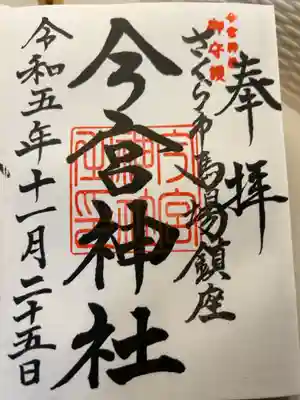 奉拝
今宮神社
御守護
さくら市馬場鎮座
今宮神社
令和五年十一月二十五日